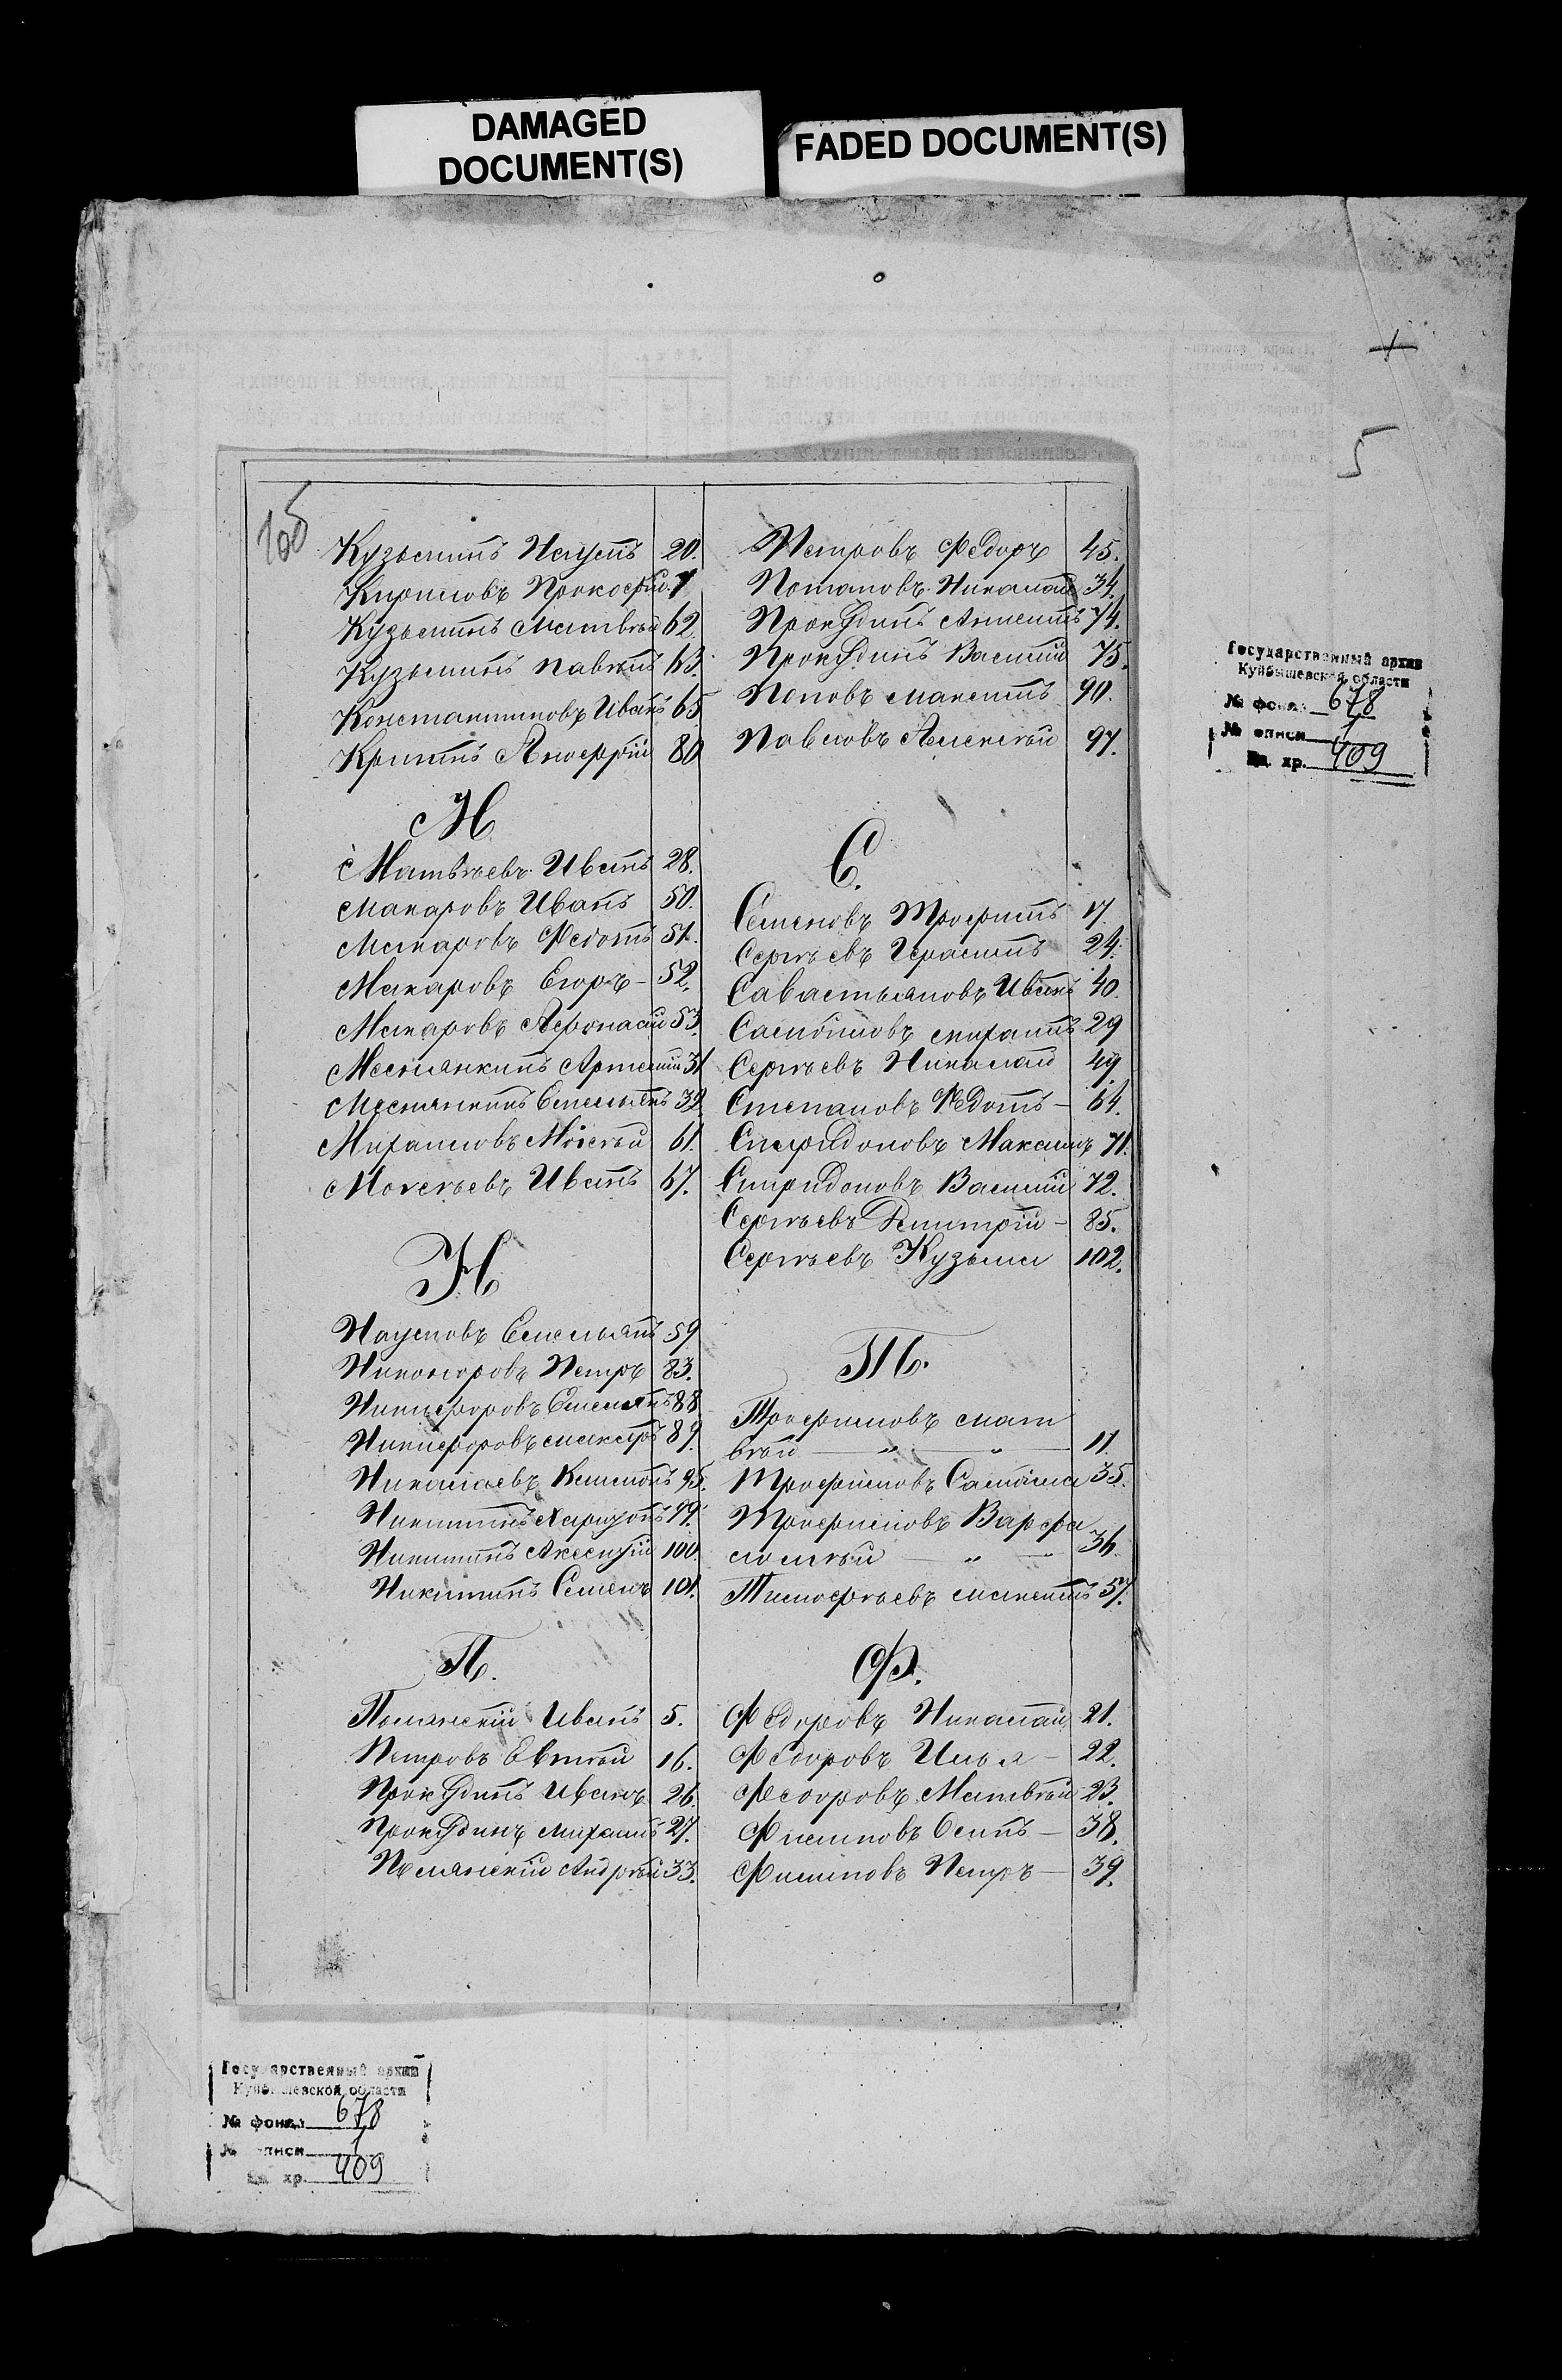 DAMAGED
DOCUMENT(S)
FADED DOCUMENT(S)
5
Государственный архив
Куйбышевской области
№ фонда 678
№ описи 1
Ед. хр. 409
Кузьминъ Наумъ 20.
Кириловъ Прокофій 7
Кузьминъ Матвѣй 62
Кузьминъ Павелъ 63.
Константиновъ Иванъ 65
80
М
Матвѣевъ Иванъ 28.
Макаровъ Иванъ 50.
Макаровъ Федотъ 51.
Макаровъ Егоръ - 52.
Макаровъ Афонасій 53.
Меснянкинъ Артемій 31
Меснянкинъ Емельянъ 32
Михаиловъ Моисей 61.
Моисеевъ Иванъ 67.
Н
Наумовъ Емельянъ 59
Никоноровъ Петръ 83.
Никифоровъ Емельянъ 88
Никифоровъ 89.
Николаевъ 95.
Никитинъ Харитонъ 99.
Никитинъ Алексѣй 100.
Никитинъ Семенъ 101.
П.
Полянскій Иванъ 5.
Петровъ Евтѣй 16.
Прокудинъ Иванъ 26.
Прокудинъ Михаилъ 27.
Полянскій Андрѣй 33.
Петровъ Федоръ 45.
Потаповъ Николай 34.
Прокудинъ 74.
Прокудинъ Василій 75.
Поповъ Максимъ 90.
Павловъ Алексѣй 97.
С.
Семеновъ Трофимъ 17.
Сергѣевъ Герасимъ 24.
Савастьяновъ Иванъ 40.
Самойловъ Михаилъ 29
Сергѣевъ Николай 49.
Степановъ Федотъ - 64.
Спиридоновъ Максимъ 71.
Спиридоновъ Василій 72.
Сергѣевъ Дмитрій - 85.
Сергѣевъ Кузьма 102.
Т.
Трофимовъ Мат
вѣй — „ — „ — 11.
Трофимовъ Самойла 35.
Трофимовъ Варфа
ломѣй — „ — 36.
Тимофѣевъ Максимъ 57.
Ф.
Федоровъ Николай 21.
Федоровъ Илья - 22.
Федоровъ Матвѣй 23.
Филиповъ Осипъ - 38.
Филиповъ Петръ - 39.
Государственный архив
Куйбышевской области
№ фонда 678
№ описи 1
Ед. хр. 409